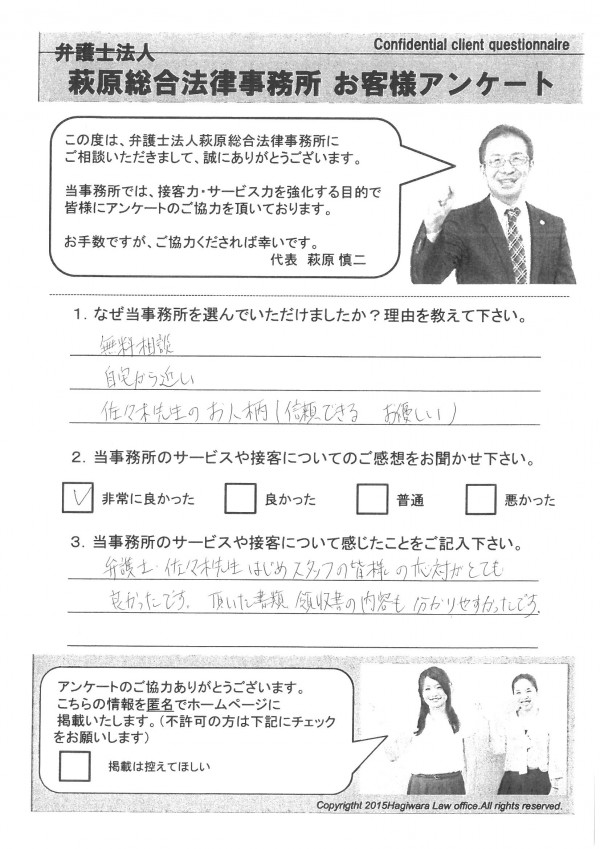 Confidential client questionnaire
弁護士法人
萩原総合法律事務所 お客様アンケート
この度は、弁護士法人萩原総合法律事務所に
ご相談いただきまして、誠にありがとうございます。
当事務所では、接客力・サービス力を強化する目的で
皆様にアンケートのご協力を頂いております。
お手数ですが、ご協力くだされば幸いです。
代表 萩原 慎二
1. なぜ当事務所を選んでいただけましたか？理由を教えて下さい。
無料相談
自宅から近い
佐々木先生のお人柄（信頼できる お優しい）
2. 当事務所のサービスや接客についてのご感想をお聞かせ下さい。
非常に良かった 良かった 普通 悪かった
3. 当事務所のサービスや接客について感じたことをご記入下さい。
弁護士 佐々木先生はじめスタッフの皆様の応対がとても
良かったです。頂いた書類 領収書の内容も 分かりやすかったです。
アンケートのご協力ありがとうございます。
こちらの情報を匿名でホームページに
掲載いたします。（不許可の方は下記にチェック
をお願いします）
掲載は控えてほしい
Copyright 2015Hagiwara Law office.All rights reserved.